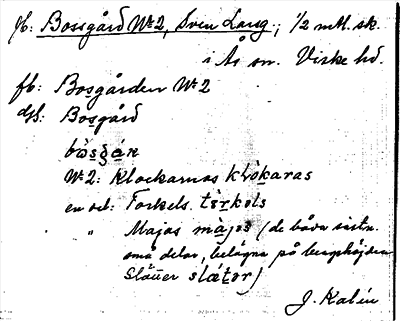 f.: Bossgård Nr 2, Sven Larsg.; 1/2 mtl. sk.
i Ås sn. Viske hd.
fb: Bosgården Nr 2
ds.: Bosgård
bòsgán
Nr 2: Klockarnas klòkaras
en del: Torkels. tèrkels
" Majas màjas (de båda sistn.
små delar, belägna på bergshöjden
Slåtter slátər)
J. Kalén